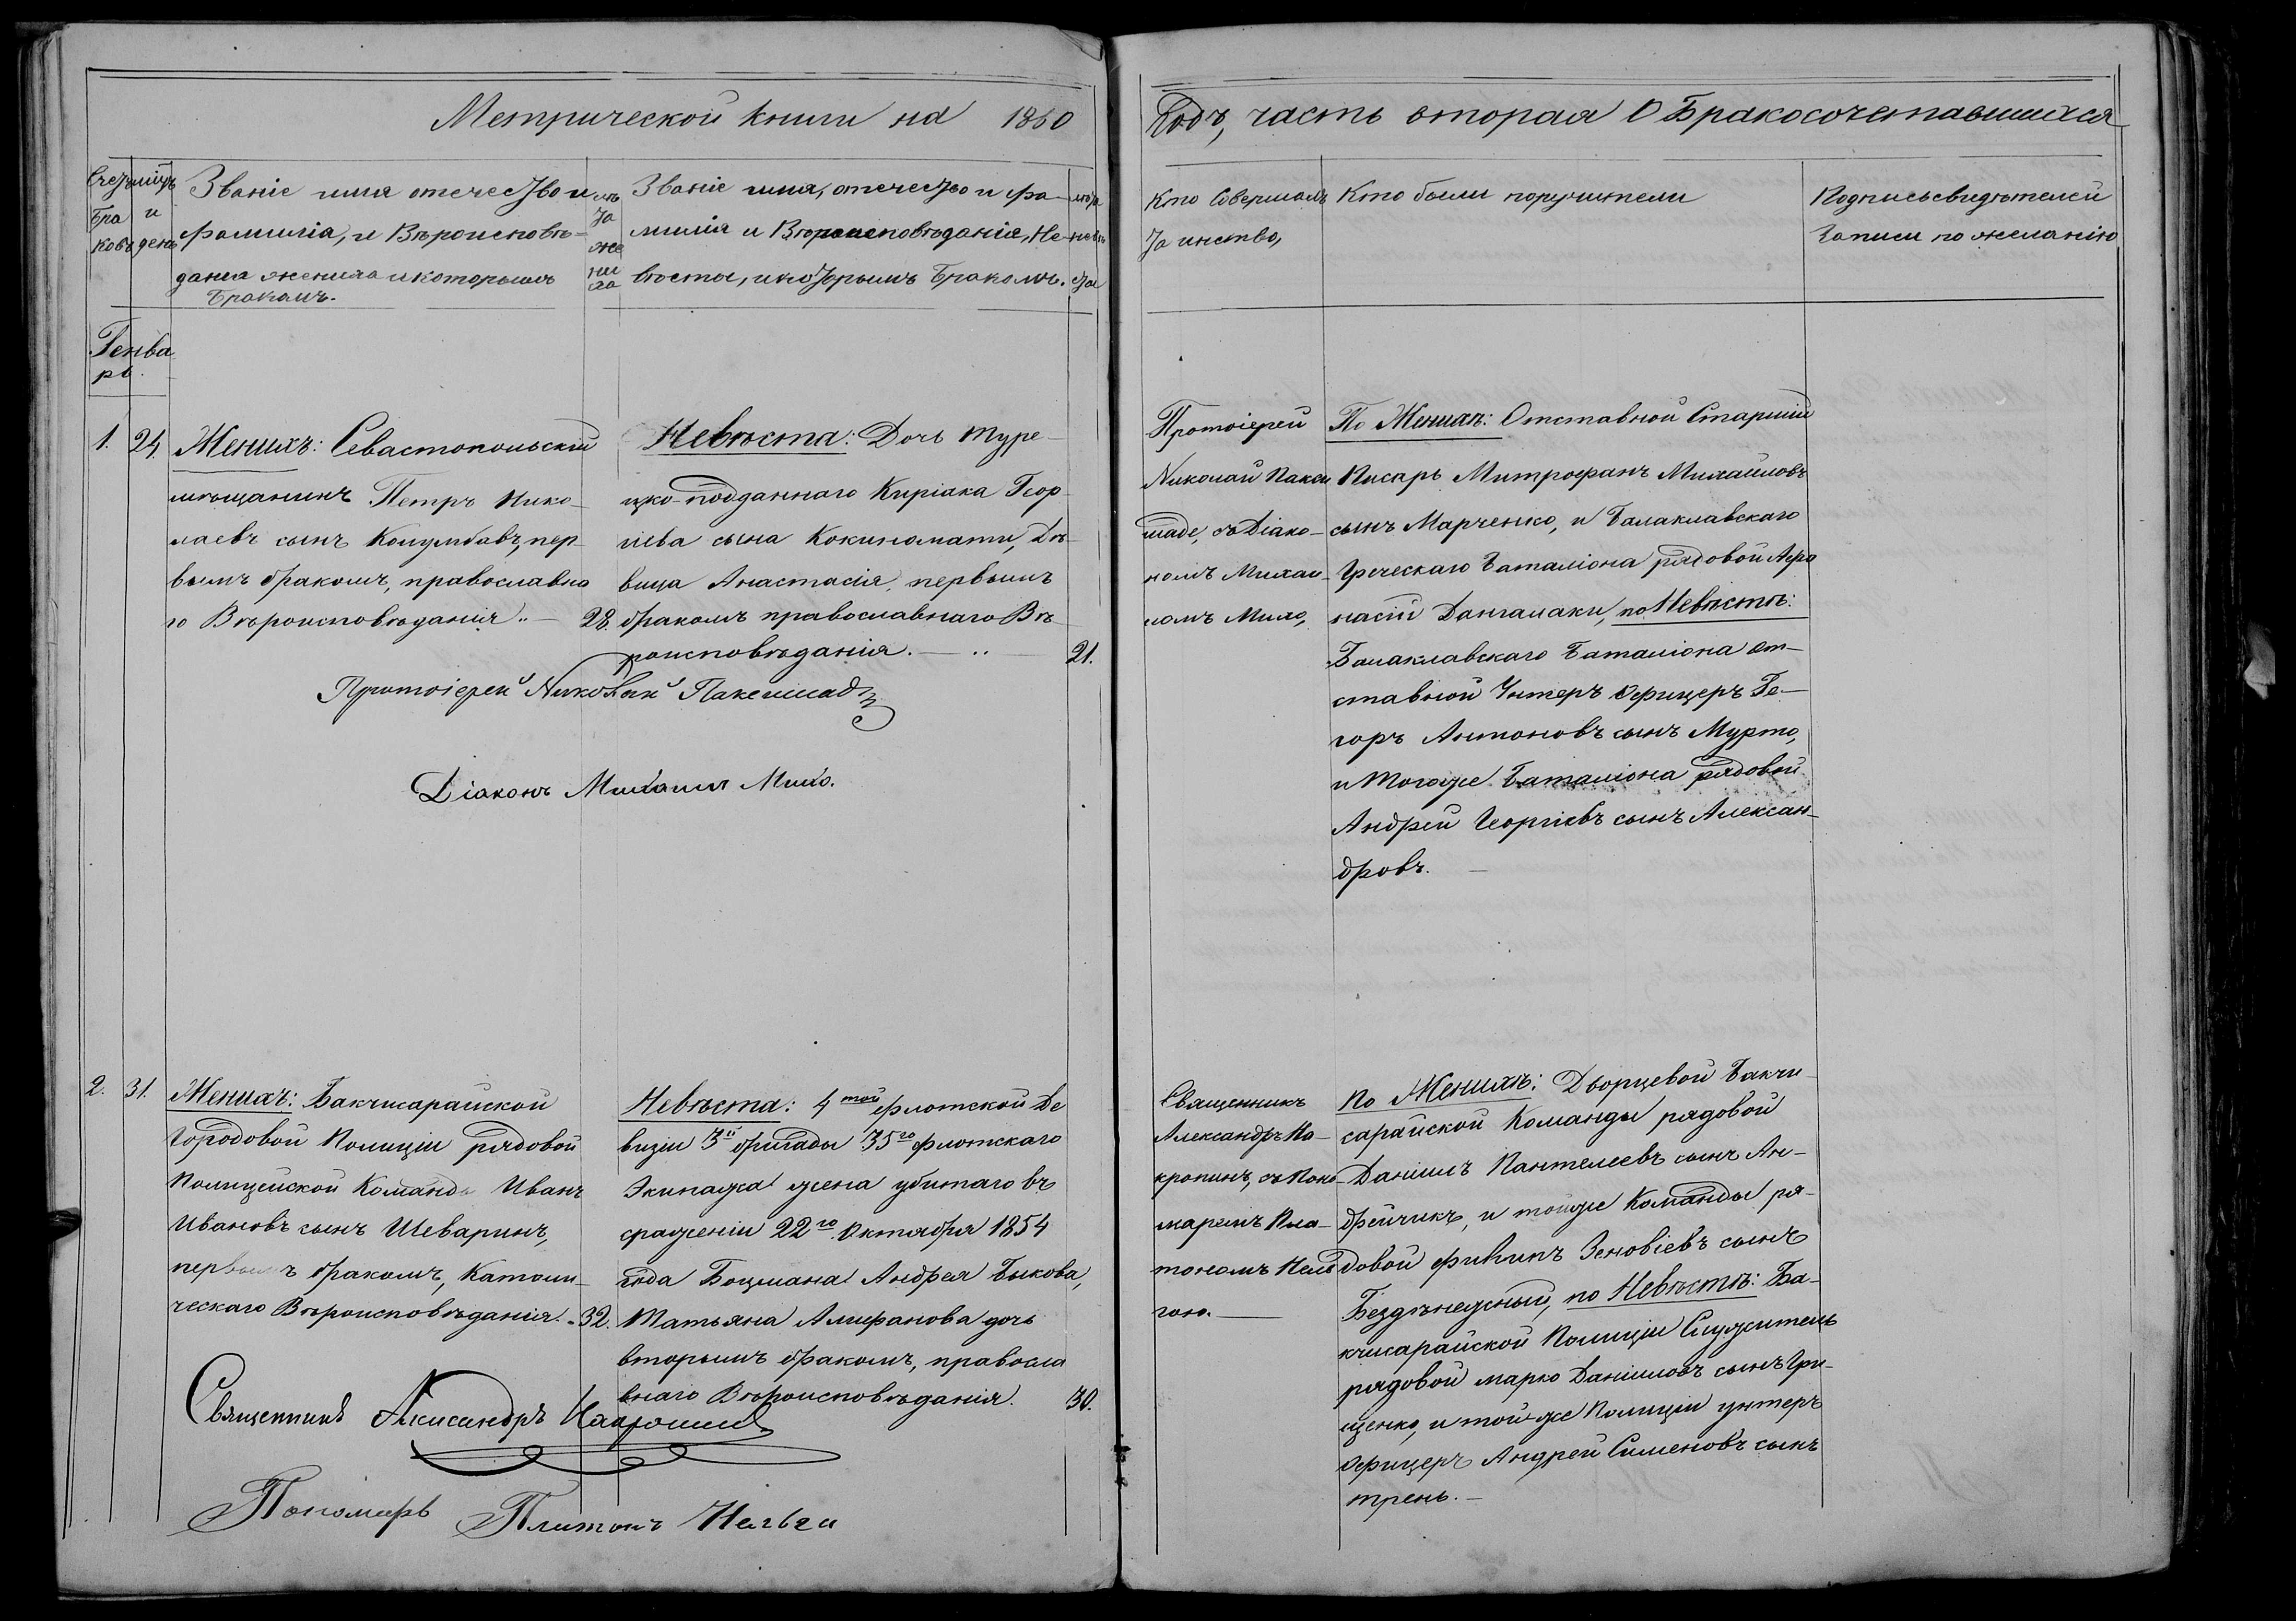 Метрической книги на 1860
Годъ, часть вторая О Бракосочетавшихся
Счетъ Бра ковъ
мцъ и день
Званіе имя отечество и
фамилія, и Вѣроисповѣ-
данія жениха и которымъ
Бракомъ.
лѣ та же ни ха
Званіе имя, отечество и фа-
милія и Вѣроисповѣданія, Не-
вѣсты, и которымъ Бракомъ.
лѣта невѣ сты
Кто Совершалъ
Таинство,
Кто были поручители
Подпись свидѣтелей
Записи по желанію
Генва
рь.
1. 24.
Женихъ: Севастопольскій
мѣщанинъ Петръ Нико-
лаевъ сынъ Колумбовъ, пер-
вымъ бракомъ, православна
го Вѣроисповѣданія. 28.
Невѣста: Дочь туре-
цко-подданнаго Киріака Геор-
гіева сына Кокинопати, Дѣ-
вица Анастасія, первымъ
бракомъ православнаго Вѣ-
роисповѣданія. 21.
Протоіерей Николай Пакешмади
Діаконъ Михаилъ Михо.
Протоіерей
Николай Паке
шаде, съ Діако-
номъ Михаи-
ломъ Михо,
По Женихѣ: Отставной Старшій
Писарь Митрофанъ Михайловъ
сынъ Марченко, и Балаклавскаго
Греческаго Баталіона рядовой Афа
насій Дангалаки, по Невѣстѣ:
Балаклавскаго Баталіона от-
ставной Унтеръ Офицеръ Ге-
горъ Антоновъ сынъ Мурто,
и Тогоже Баталіона рядовой
Андрей Георгіевъ сынъ Алексан-
дровъ.
2. 31.
Женихъ: Бакчисарайской
Городовой Полиціи рядовой
Полицейской Команды Иванъ
Ивановъ сынъ Шеваринъ,
первымъ бракомъ, Католи-
ческаго Вѣроисповѣданія. 32.
Невѣста: 4той флотской Де
визіи 3й бригады 35го флотскаго
Экипажа жена убитаго въ
сраженіи 22го Октября 1854
года Боцмана Андрея Быкова,
Татьяна Алифанова дочь
вторымъ бракомъ, правосла
внаго Вѣроисповѣданія. 30.
Священникъ Александръ
Пономарь Платонъ
Священникъ
Александръ На-
кропинъ, съ Поно-
маремъ Пла-
тономъ Нель
гою.
По Женихѣ: Дворцевой Бакчи-
сарайской Команды рядовой
Даніилъ Пантелеевъ сынъ Ан-
дрейчикъ, и тойже Команды ря-
довой Филипъ Зеновіевъ сынъ
Бездѣнежный, по Невѣстѣ: Ба-
кчисарайской Полиціи Служитель
рядовой Марко Даніиловъ сынъ Гри-
щенко, и той же Полиціи унтеръ
Офицеръ Андрей Сименовъ сынъ
трень.